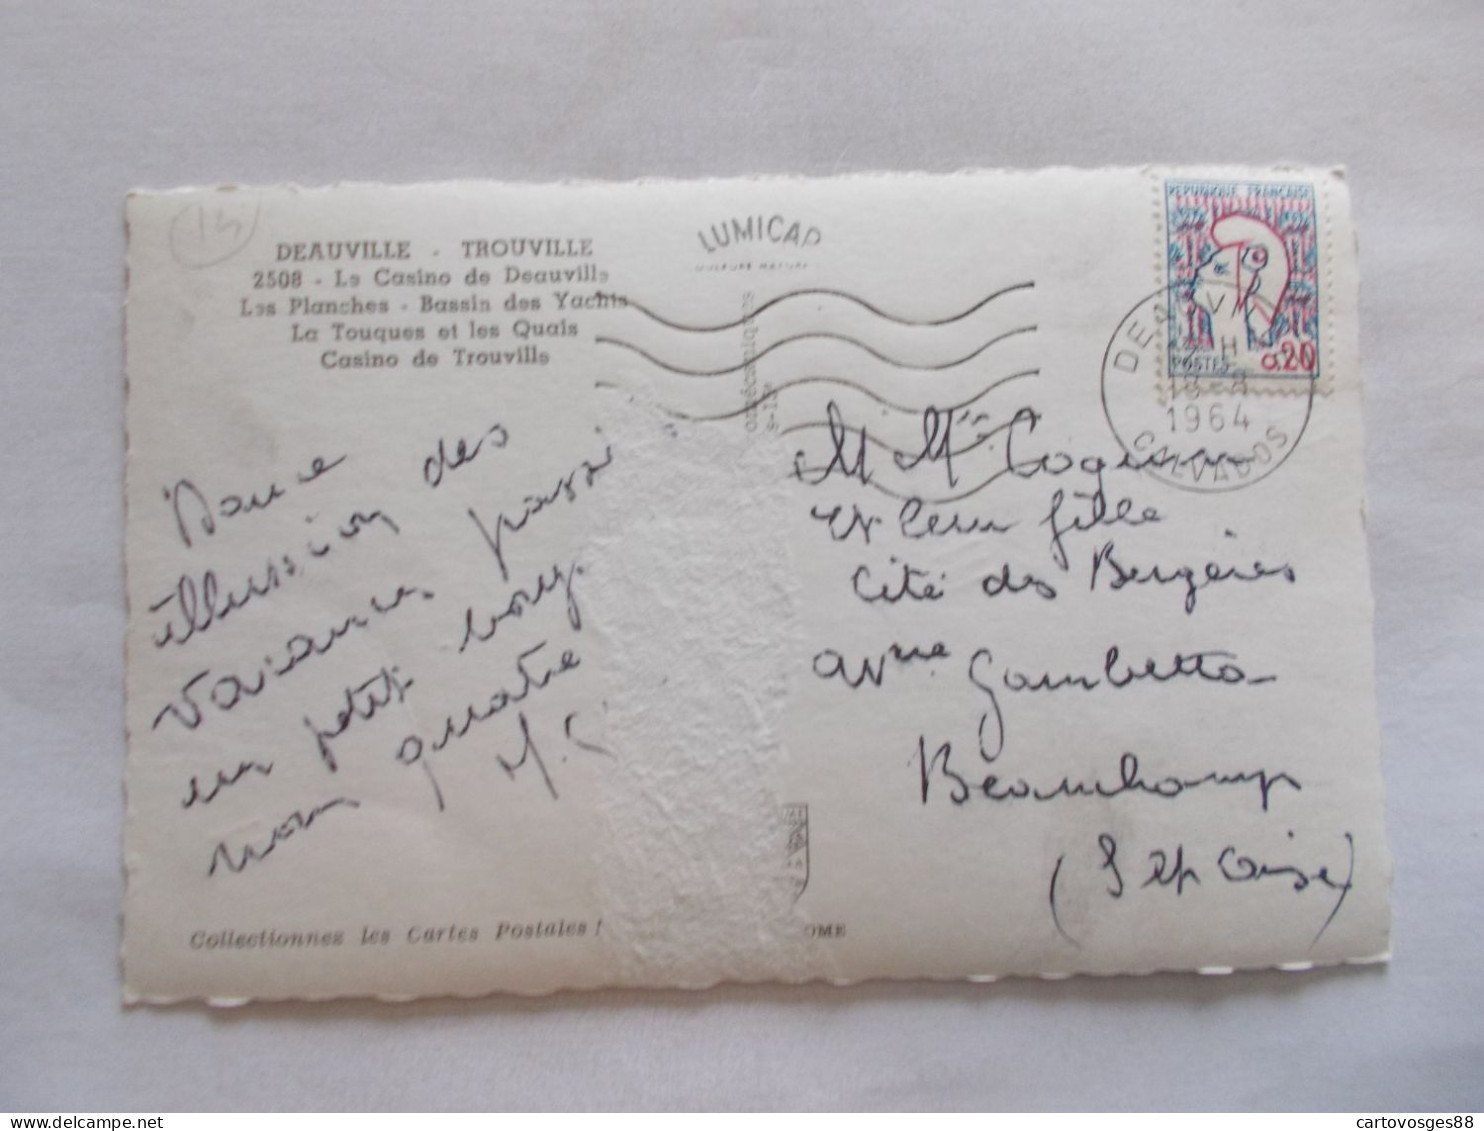 14
DEAUVILLE - TROUVILLE
2508 - Le Casino de Deauville
Les Planches - Bassin des Yachts
La Touques et les Quais
Casino de Trouville
LUMICAP
REPUBLIQUE FRANÇAISE
POSTES 0.20
1964
CALVADOS
Douce
illusion des
vacances,
un petit
quatre
M.
M Mme
et leur fille
Cité des Bergères
avnue Gambetta
Beauchamp
(S et Oise)
Collectionnez les Cartes Postales !
OME
cartovosges88